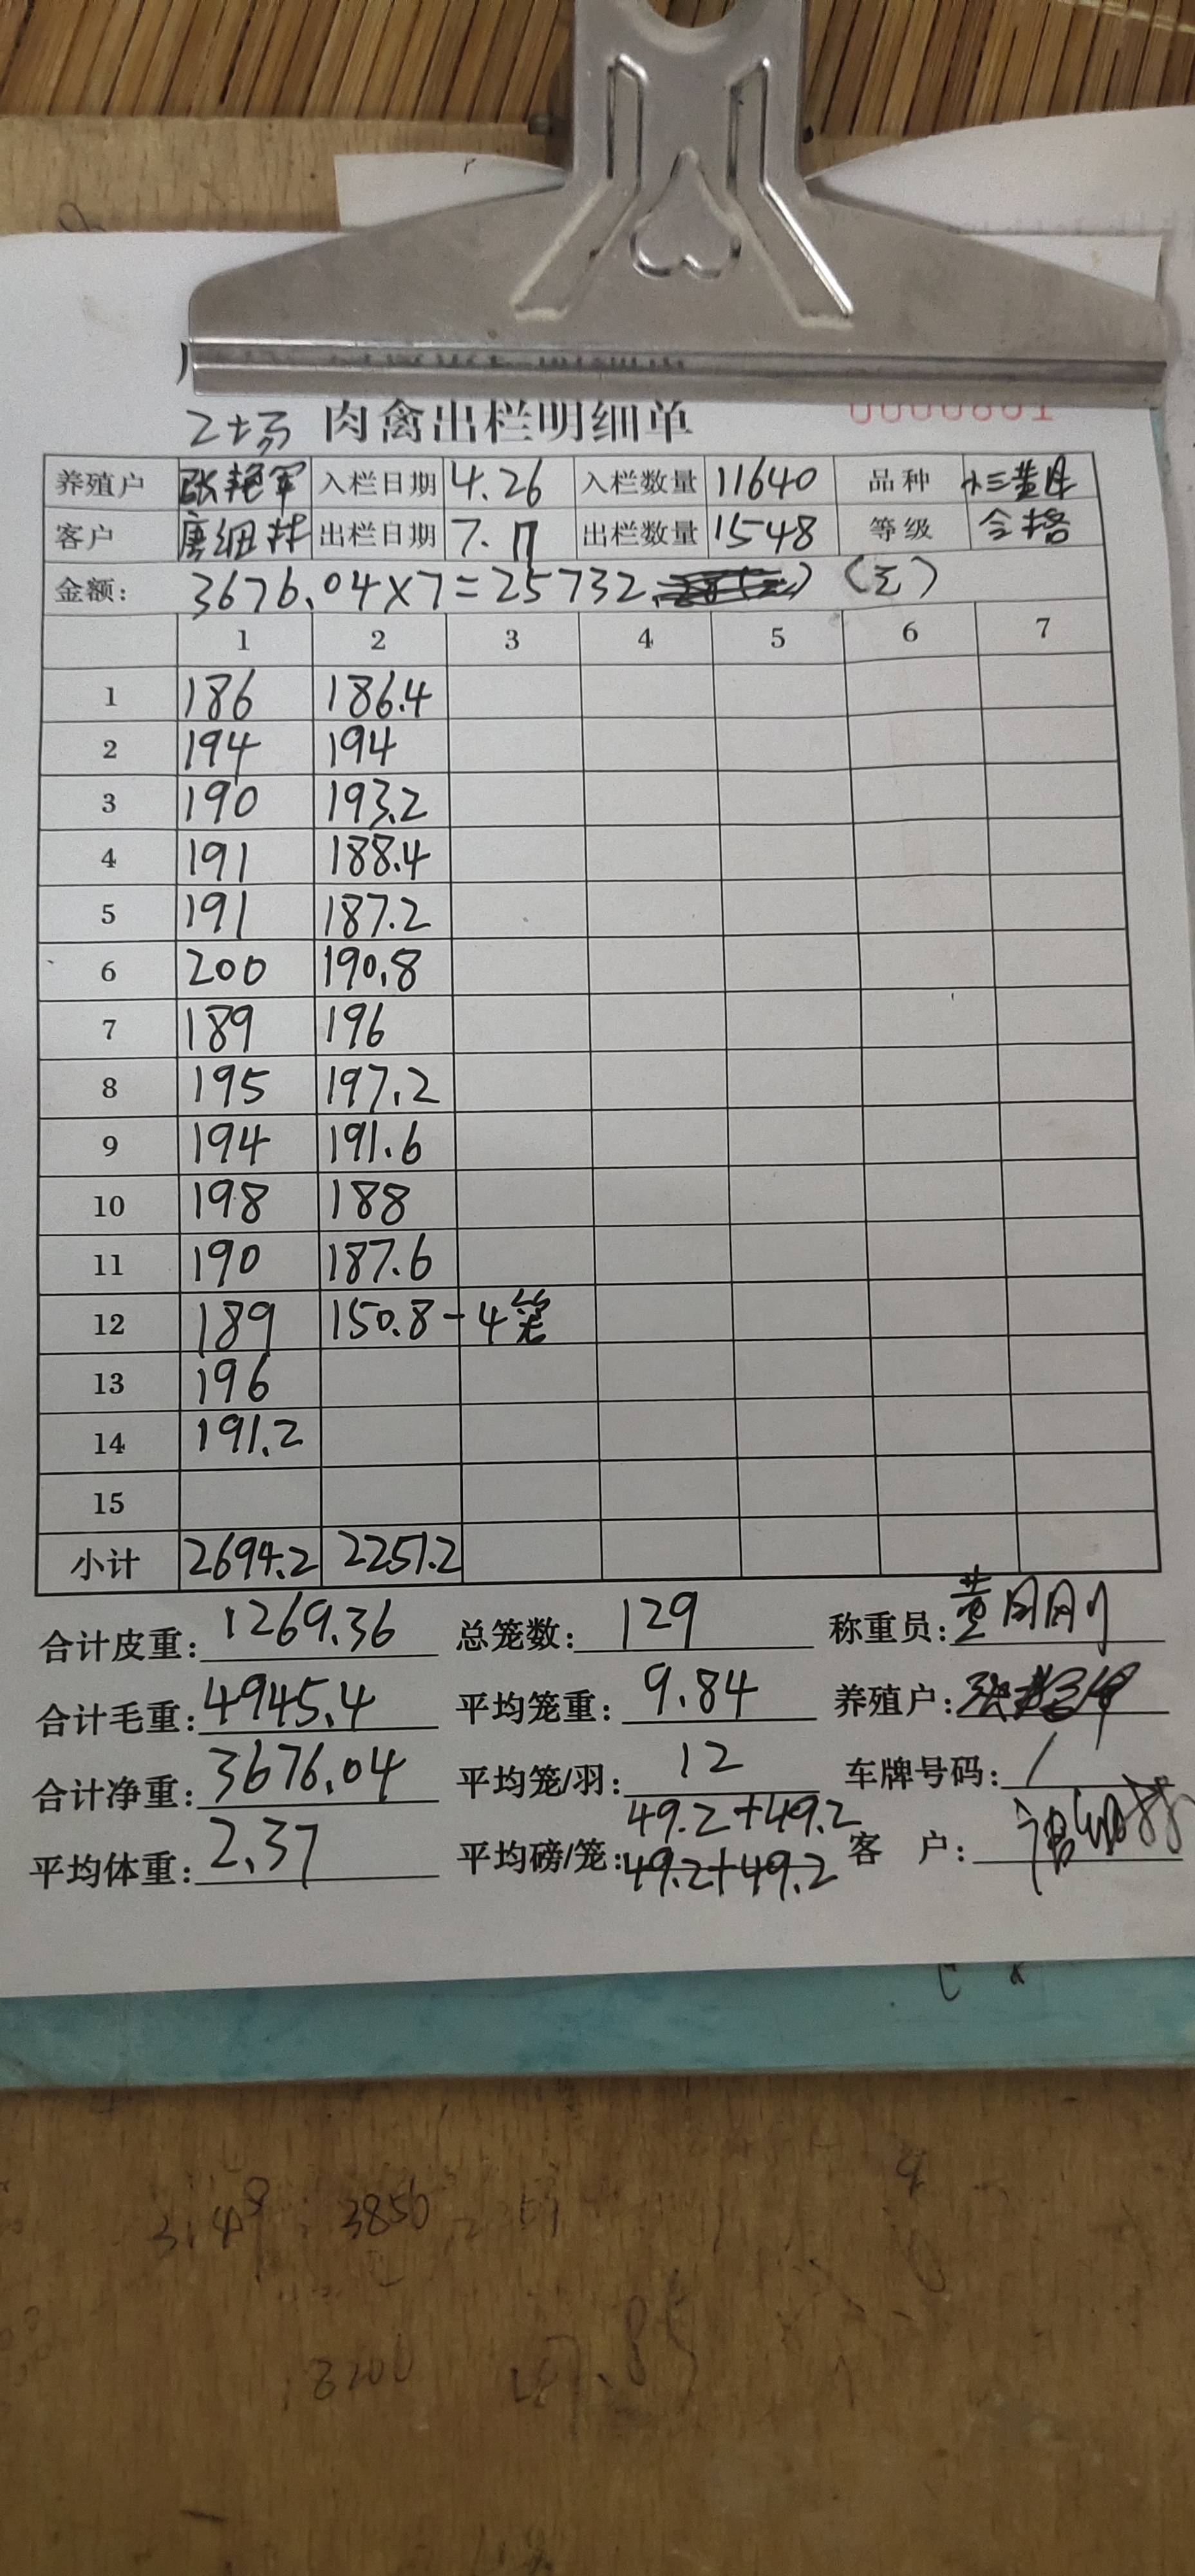 2场 肉禽出栏明细单 0000801
养殖户 张艳军 入栏日期 4.26 入栏数量 11640 品种 小三黄母
客户 唐细林 出栏日期 7.17 出栏数量 1548 等级 合格
金额: 3676.04×7=25732 (元)
1 2 3 4 5 6 7
1 186 186.4
2 194 194
3 190 193.2
4 191 188.4
5 191 187.2
6 200 190.8
7 189 196
8 195 197.2
9 194 191.6
10 198 188
11 190 187.6
12 189 150.8-4笼
13 196
14 191.2
15
小计 2694.2 2251.2
合计皮重: 1269.36 总笼数: 129 称重员: 黄刚刚
合计毛重: 4945.4 平均笼重: 9.84 养殖户:
合计净重: 3676.04 平均笼/羽: 12 车牌号码: /
49.2+49.2
平均体重: 2.37 平均磅/笼: 49.2+49.2 客 户:
3850